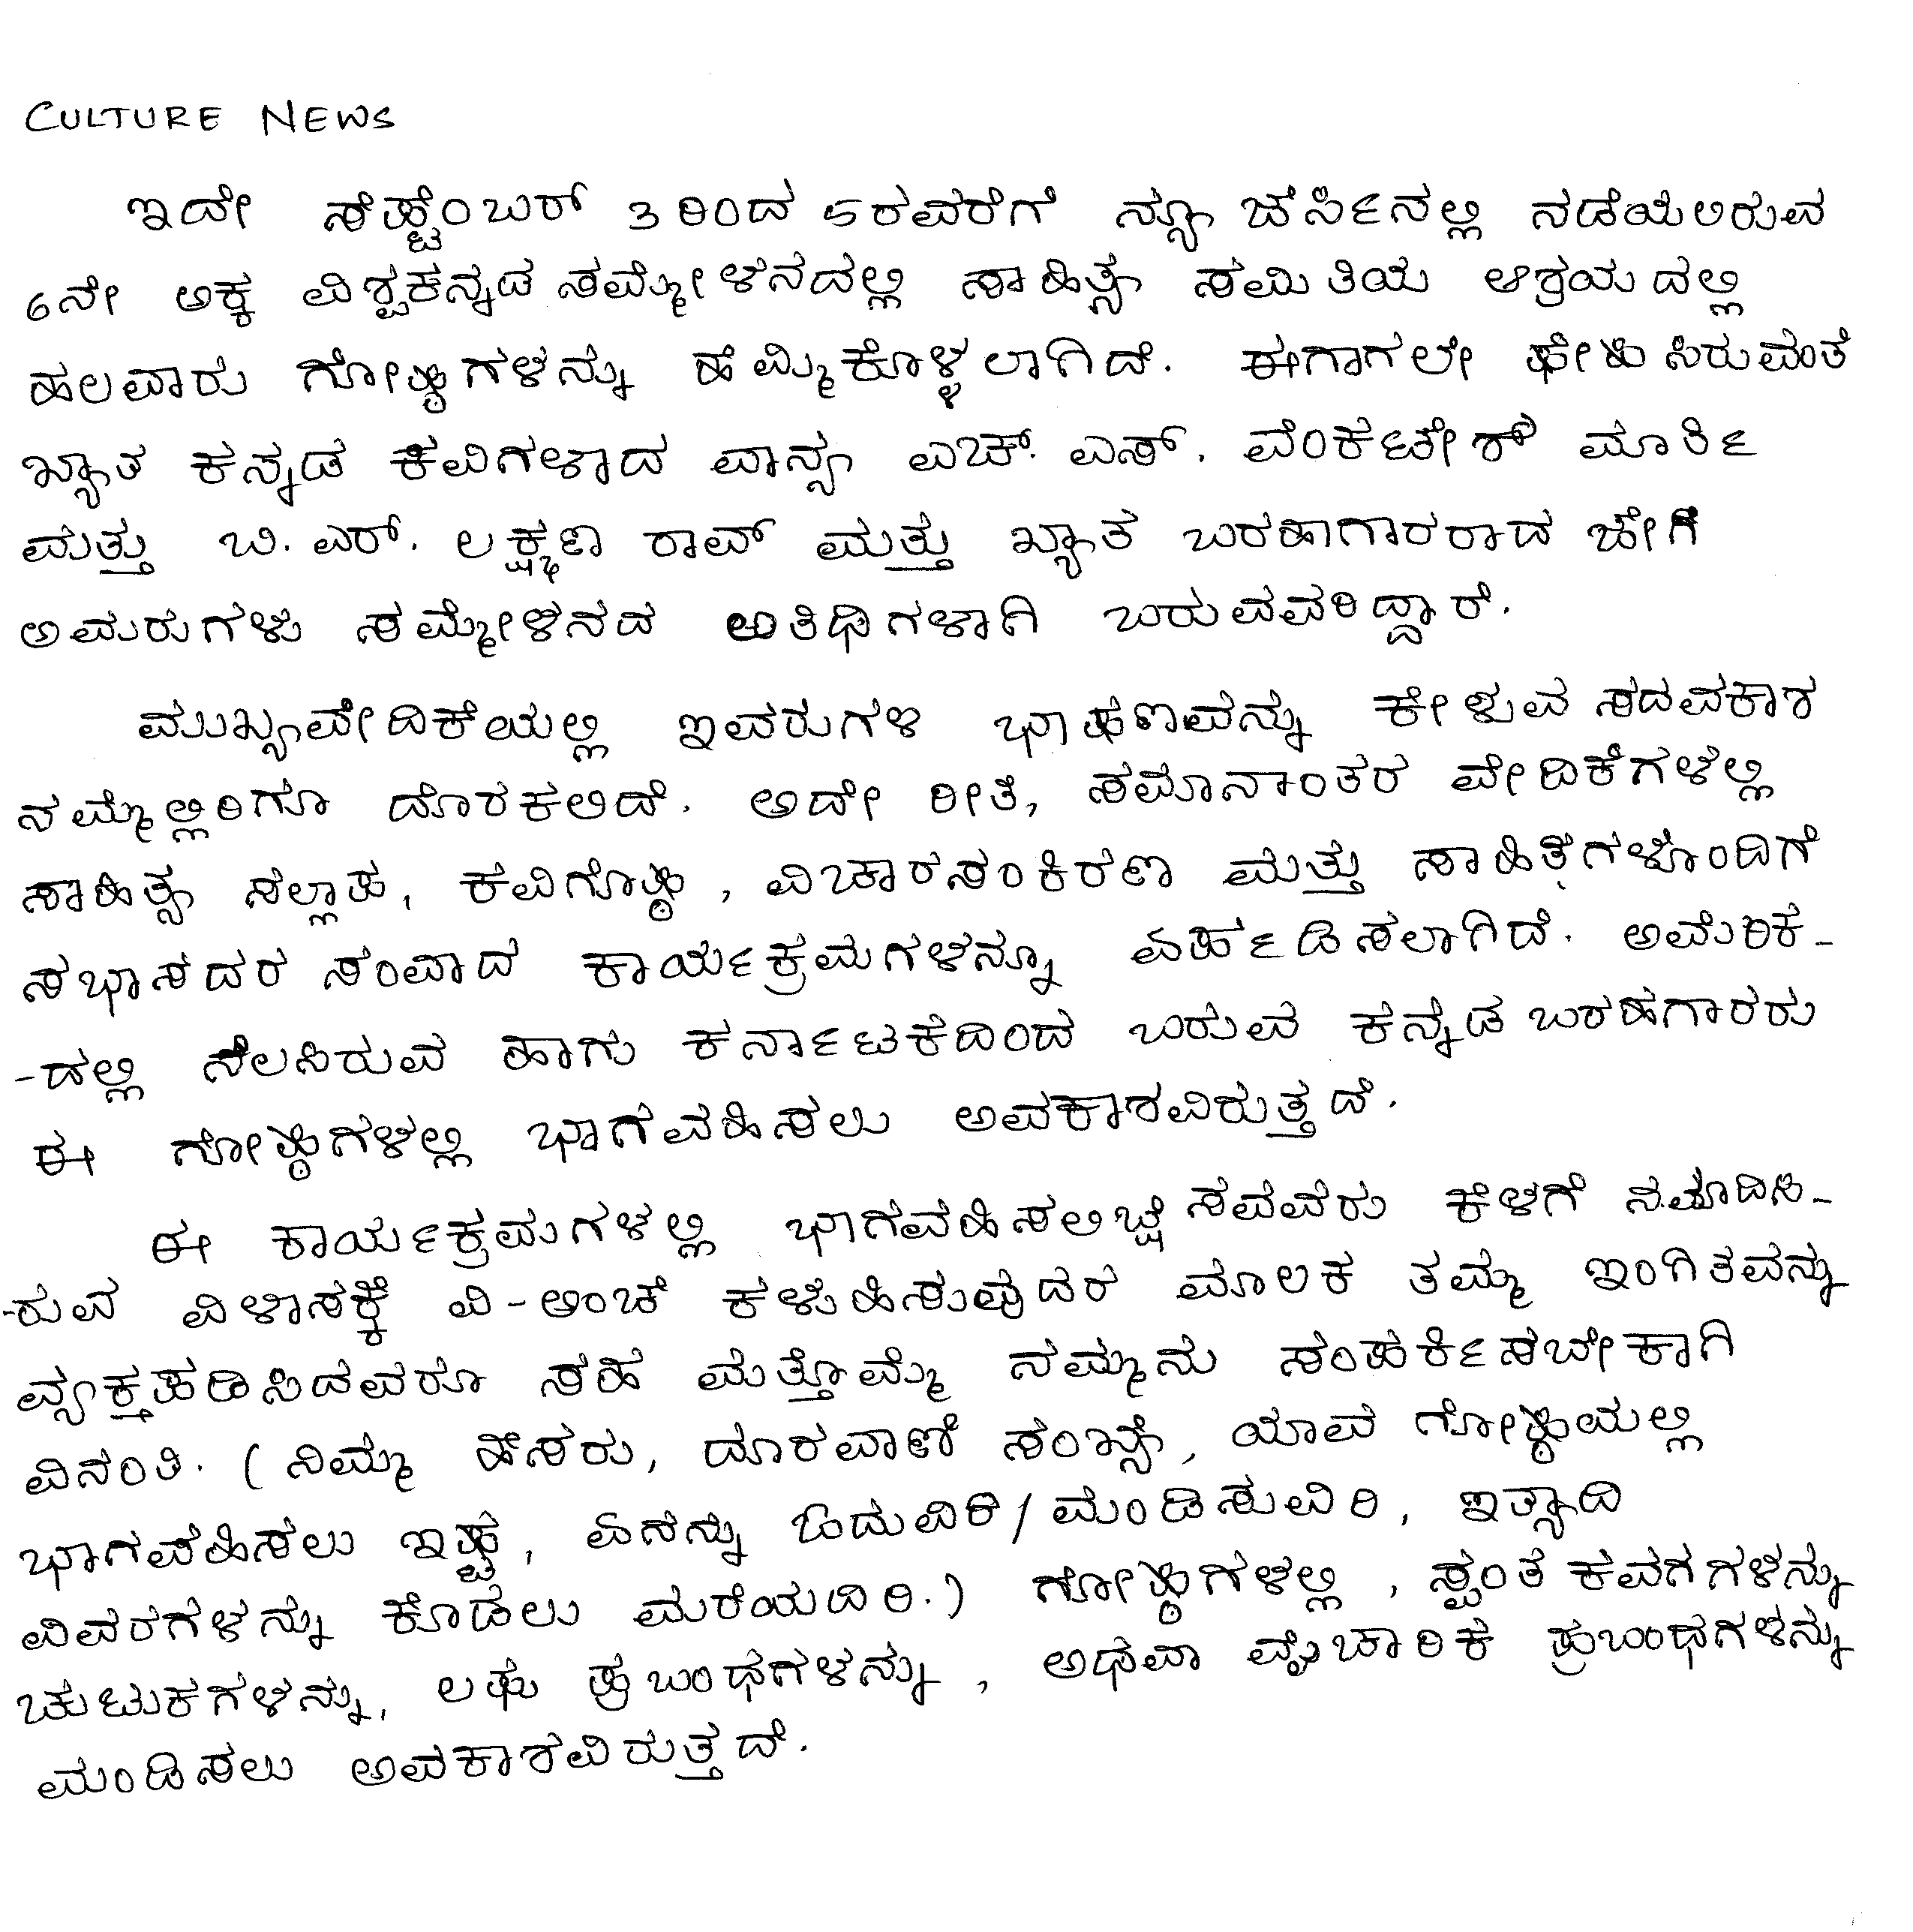 CULTURE NEWS
ಇದೇ ಸೆಪ್ಟೆಂಬರ್ 3 ರಿಂದ 5ರವರೆಗೆ ನ್ಯೂ ಜೆರ್ಸಿನಲ್ಲಿ ನಡೆಯಲಿರುವ
6ನೇ ಅಕ್ಕ ವಿಶ್ವಕನ್ನಡ ಸಮ್ಮೇಳನದಲ್ಲಿ ಸಾಹಿತ್ಯ ಸಮಿತಿಯ ಆಶ್ರಯದಲ್ಲಿ
ಹಲವಾರು ಗೋಷ್ಠಿಗಳನ್ನು ಹಮ್ಮಿಕೊಳ್ಳಲಾಗಿದೆ. ಈಗಾಗಲೇ ಘೋಷಿಸಿರುವಂತೆ
ಖ್ಯಾತ ಕನ್ನಡ ಕವಿಗಳಾದ ಮಾನ್ಯ ಎಚ್. ಎಸ್. ವೆಂಕಟೇಶ್ ಮೂರ್ತಿ
ಮತ್ತು ಬಿ. ಎರ್. ಲಕ್ಷ್ಮಣ ರಾವ್ ಮತ್ತು ಖ್ಯಾತ ಬರಹಾಗಾರರಾದ ಜೋಗಿ
ಅವರುಗಳು ಸಮ್ಮೇಳನದ ಅತಿಥಿಗಳಾಗಿ ಬರುವವರಿದ್ದಾರೆ.
ಮುಖ್ಯವೇದಿಕೆಯಲ್ಲಿ ಇವರುಗಳ ಭಾಷಣವನ್ನು ಕೇಳುವ ಸದವಕಾಶ
ನಮ್ಮೆಲ್ಲರಿಗೂ ದೊರಕಲಿದೆ. ಅದೇ ರೀತಿ, ಸಮಾನಾಂತರ ವೇದಿಕೆಗಳಲ್ಲಿ
ಸಾಹಿತ್ಯ ಸಲ್ಲಾಪ, ಕವಿಗೊಷ್ಠಿ, ವಿಚಾರಸಂಕಿರಣ ಮತ್ತು ಸಾಹಿತಿಗಳೊಂದಿಗೆ
ಸಭಾಸದರ ಸಂವಾದ ಕಾರ್ಯಕ್ರಮಗಳನ್ನೂ ಏರ್ಪಡಿಸಲಾಗಿದೆ. ಅಮೆರಿಕ-
-ದಲ್ಲಿ ನೆಲಸಿರುವ ಹಾಗು ಕರ್ನಾಟಕದಿಂದ ಬರುವ ಕನ್ನಡ ಬರಹಗಾರರು
ಈ ಗೋಷ್ಠಿಗಳಲ್ಲಿ ಭಾಗವಹಿಸಲು ಅವಕಾಶವಿರುತ್ತದೆ.
ಈ ಕಾರ್ಯಕ್ರಮಗಳಲ್ಲಿ ಭಾಗವಹಿಸಲಿಚ್ಛಿಸುವವರು ಕೆಳಗೆ ನಮೂದಿಸಿ-
-ರುವ ವಿಳಾಸಕ್ಕೆ ವಿ-ಅಂಚೆ ಕಳುಹಿಸುವುದರ ಮೂಲಕ ತಮ್ಮ ಇಂಗಿತವನ್ನು
ವ್ಯಕ್ತಪಡಿಸಿದವರೂ ಸಹ ಮತ್ತೊಮ್ಮೆ ನಮ್ಮನು ಸಂಪರ್ಕಿಸಬೇಕಾಗಿ
ವಿನಂತಿ. (ನಿಮ್ಮ ಹೆಸರು, ದೂರವಾಣಿ ಸಂಖ್ಯೆ, ಯಾವ ಗೋಷ್ಠಿಯಲ್ಲಿ
ಭಾಗವಹಿಸಲು ಇಷ್ಟ, ಏನನ್ನು ಓದುವಿರಿ/ಮಂಡಿಸುವಿರಿ, ಇತ್ಯಾದಿ
ವಿವರಗಳನ್ನು ಕೊಡಲು ಮರೆಯದಿರಿ.) ಗೋಷ್ಠಿಗಳಲ್ಲಿ, ಸ್ವಂತ ಕವನಗಳನ್ನು
ಚುಟುಕಗಳನ್ನು, ಲಘು ಪ್ರಬಂಧಗಳನ್ನು, ಅಥವಾ ವೈಚಾರಿಕ ಪ್ರಬಂಧಗಳನ್ನು
ಮಂಡಿಸಲು ಅವಕಾಶವಿರುತ್ತದೆ.